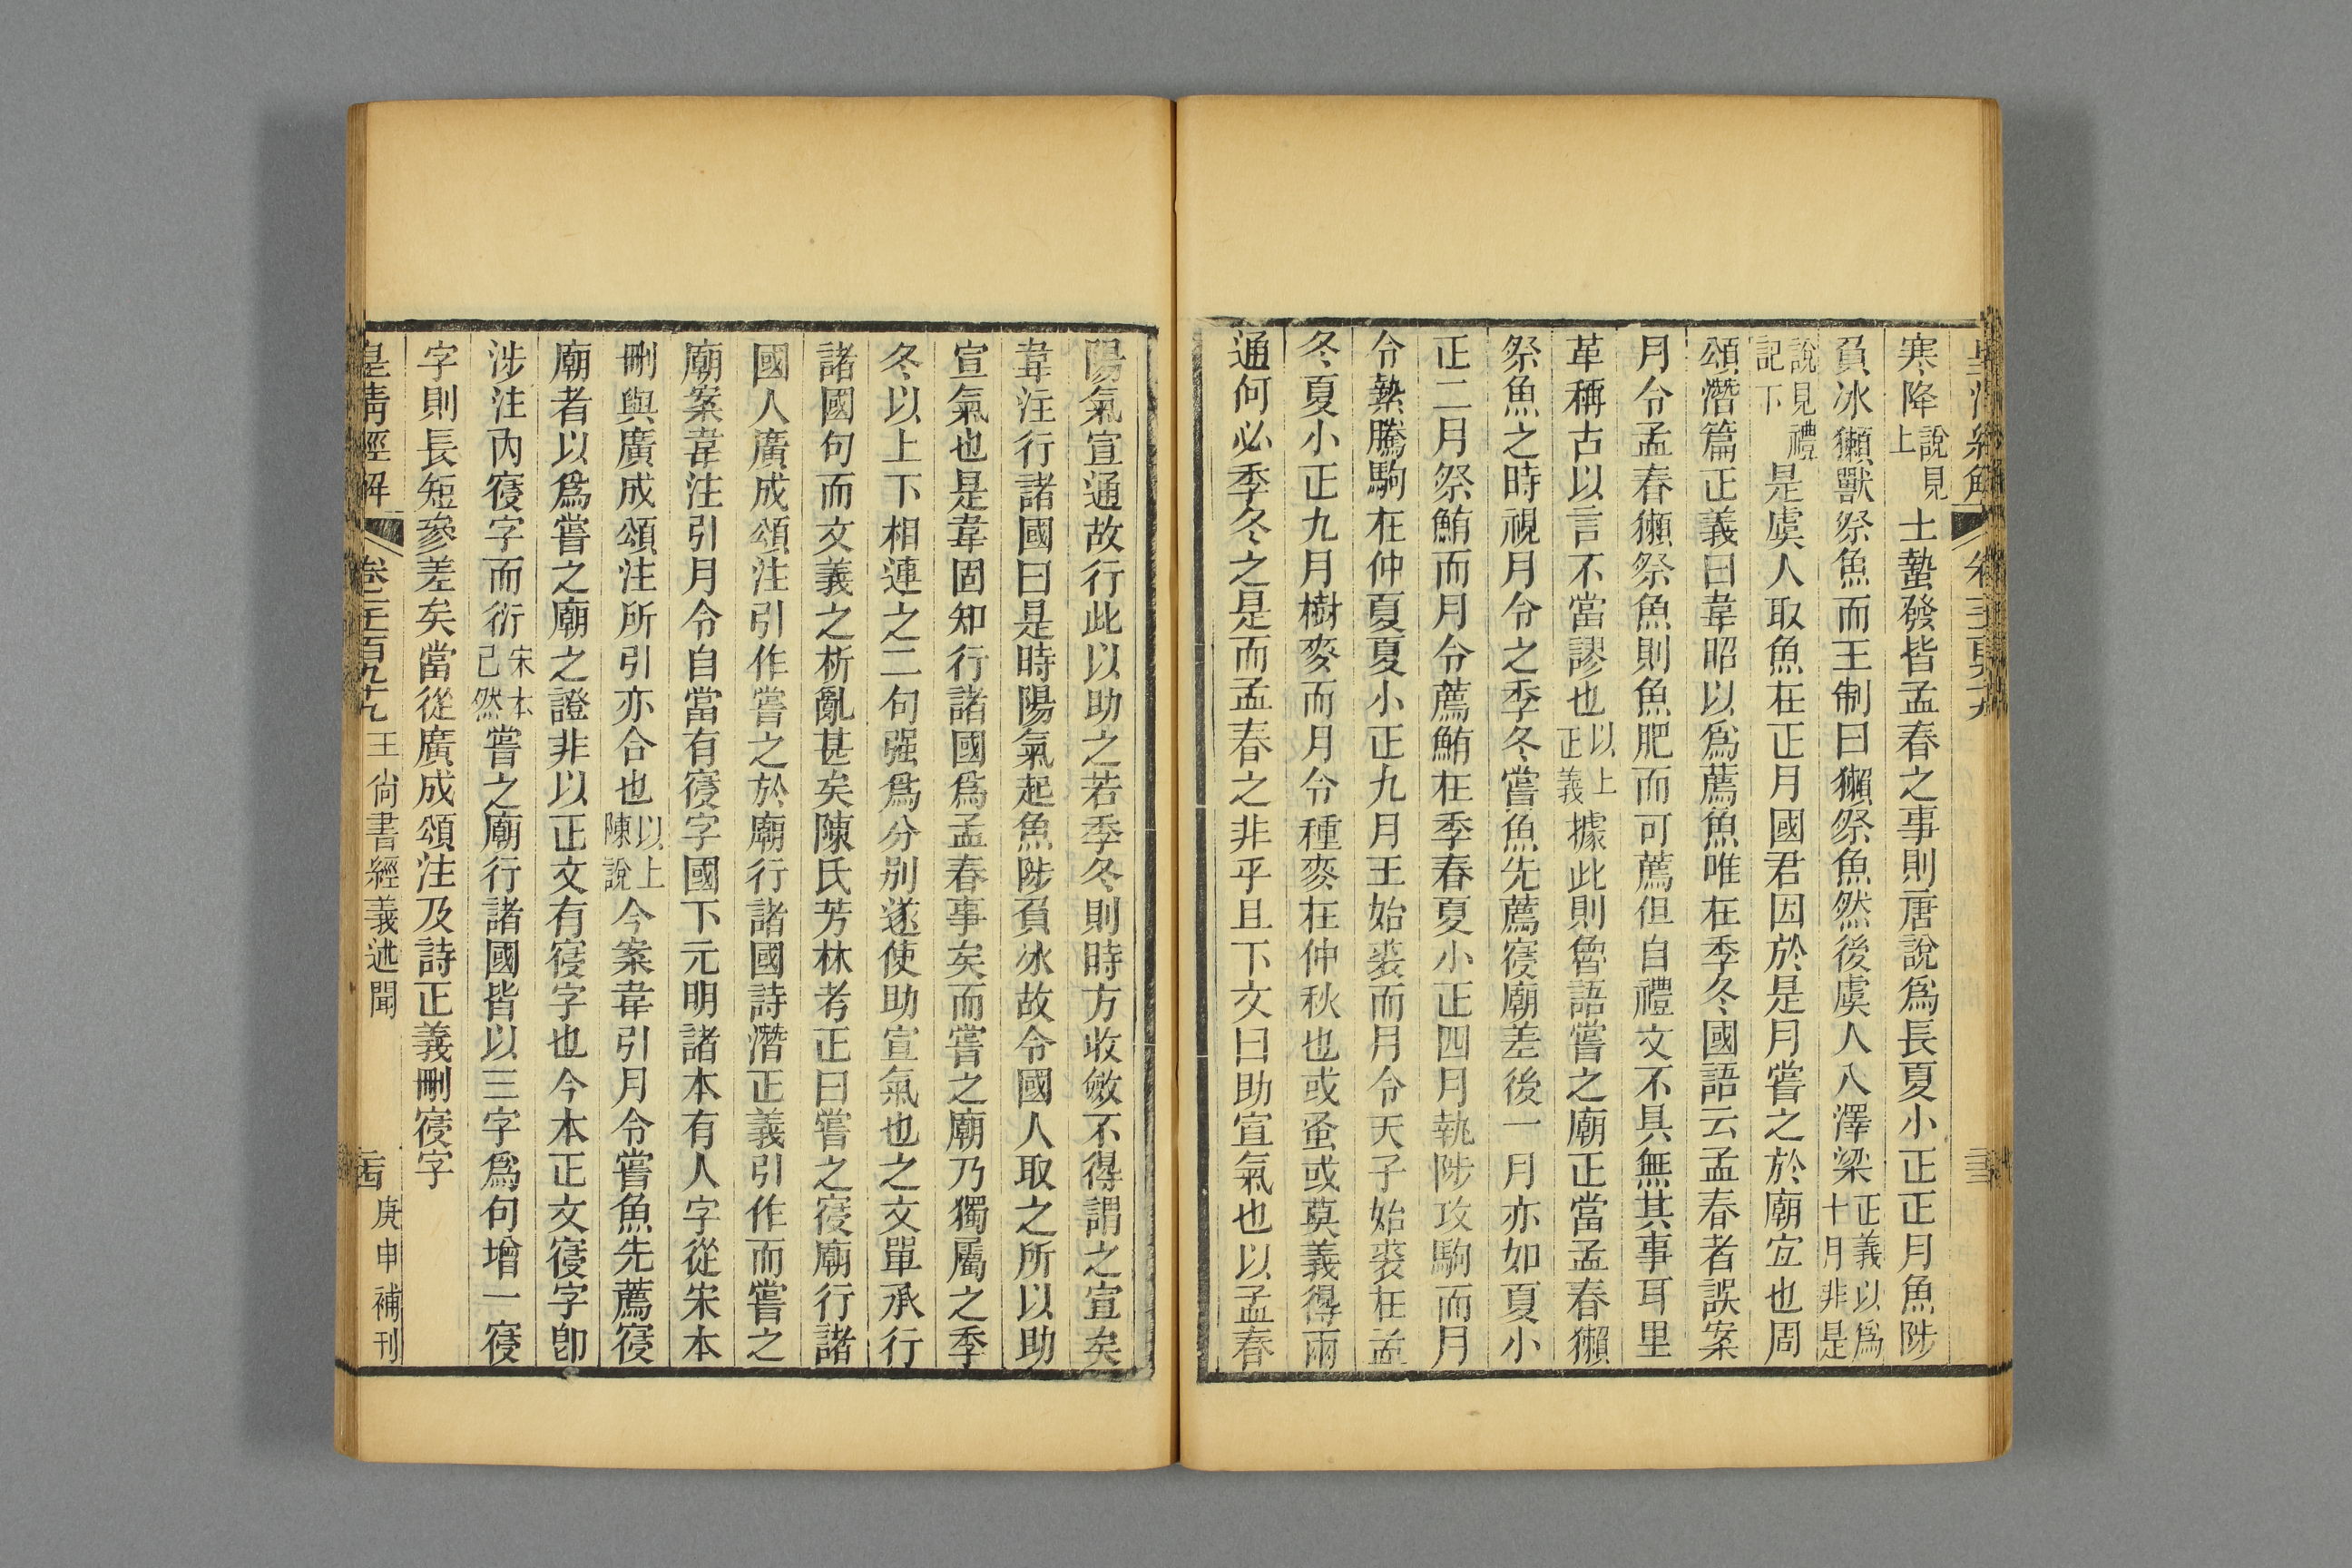 寒降說見上土蟄發皆孟春之事則唐說爲長夏小正正月魚陟
負冰獺獸祭魚而王制曰獺祭魚然後虞人入澤梁正義以爲十月非是
說見禮記下是虞人取魚在正月國君因於是月嘗之於廟宜也周
頌潛篇正義曰韋昭以爲薦魚唯在季冬國語云孟春者誤案
月令孟春獺祭魚則魚肥而可薦但自禮文不具無其事耳里
革稱古以言不當謬也以上正義據此則魯語嘗之廟正當孟春獺
祭魚之時視月令之季冬嘗魚先薦寑廟差後一月亦如夏小
正二月祭鮪而月令薦鮪在季春夏小正四月執陟攻駒而月
令縶騰駒在仲夏夏小正九月王始裘而月令天子始裘在孟
冬夏小正九月樹麥而月令種麥在仲秋也或蚤或莫義得兩
通何必季冬之是而孟春之非乎且下文曰助宣氣也以孟春
陽氣宣通故行此以助之若季冬則時方收斂不得謂之宣矣
韋注行諸國曰是時陽氣起魚陟負冰故令國人取之所以助
宣氣也是韋固知行諸國爲孟春事矣而嘗之廟乃獨屬之季
冬以上下相連之二句强爲分别遂使助宣氣也之文單承行
諸國句而文義之析亂甚矣陳氏芳林考正曰嘗之寑廟行諸
國人廣成頌注引作嘗之於廟行諸國詩潛正義引作而嘗之
廟案韋注引月令自當有寑字國下元明諸本有人字從宋本
刪與廣成頌注所引亦合也以上陳說今案韋引月令嘗魚先薦寑
廟者以爲嘗之廟之證非以正文有寑字也今本正文寑字卽
涉注內寑字而衍宋本已然嘗之廟行諸國皆以三字爲句增一寑
字則長短參差矣當從廣成頌注及詩正義刪寑字
皇清經解 卷一千一百九十九 王尙書經義述聞 庚申補刊